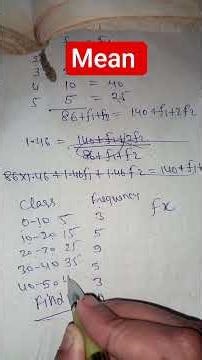 Mean
3
4 10 = 40
5 5 = 25
86+f₁+f₂ = 140+f₁+2f₂
1.46 = 140+f₁+2f₂
86+f₁+f₂
86×1.46+1.46f₁+1.46f₂=140+f₁
Class Frequency fx
0-10 5 3
10-20 15 5
20-30 25 9
30-40 35 5
40-50 4 3
Find